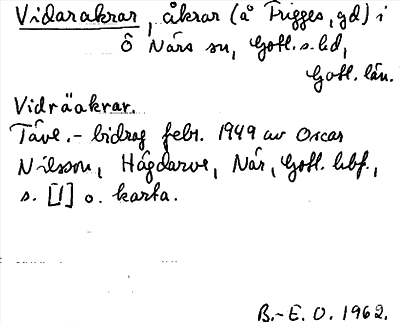 Vidarakrar, åkrar (å Frigges, gd) i
Ö När sn, Gotl. s. hd,
Gotl. län.
Vidräakrar.
Täv.- bidrag febr. 1949 av Oscar
Nilsson, Hågdarve, När, Gotl. hbf.,
s. [1] o. karta.
B.-E. O. 1962.